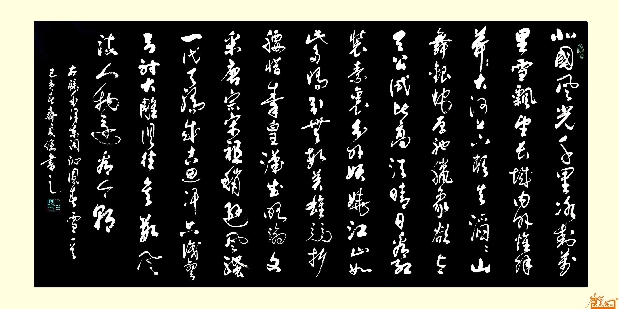 北國風光千里冰封萬
里雪飄望長城内外惟餘
莽大河上下頓失滔〻山
舞銀蛇原馳蠟象欲与
天公試比高須晴日看紅
裝素裹分外妖嬈江山如
此多嬌引無數英雄競折
腰惜秦皇漢武略輸文
采唐宗宋祖稍遜風騷
一代天驕成吉思汗只識彎
弓射大雕俱往矣數風
流人物還看今朝
右録毛澤東同沁園春雪一首
書之